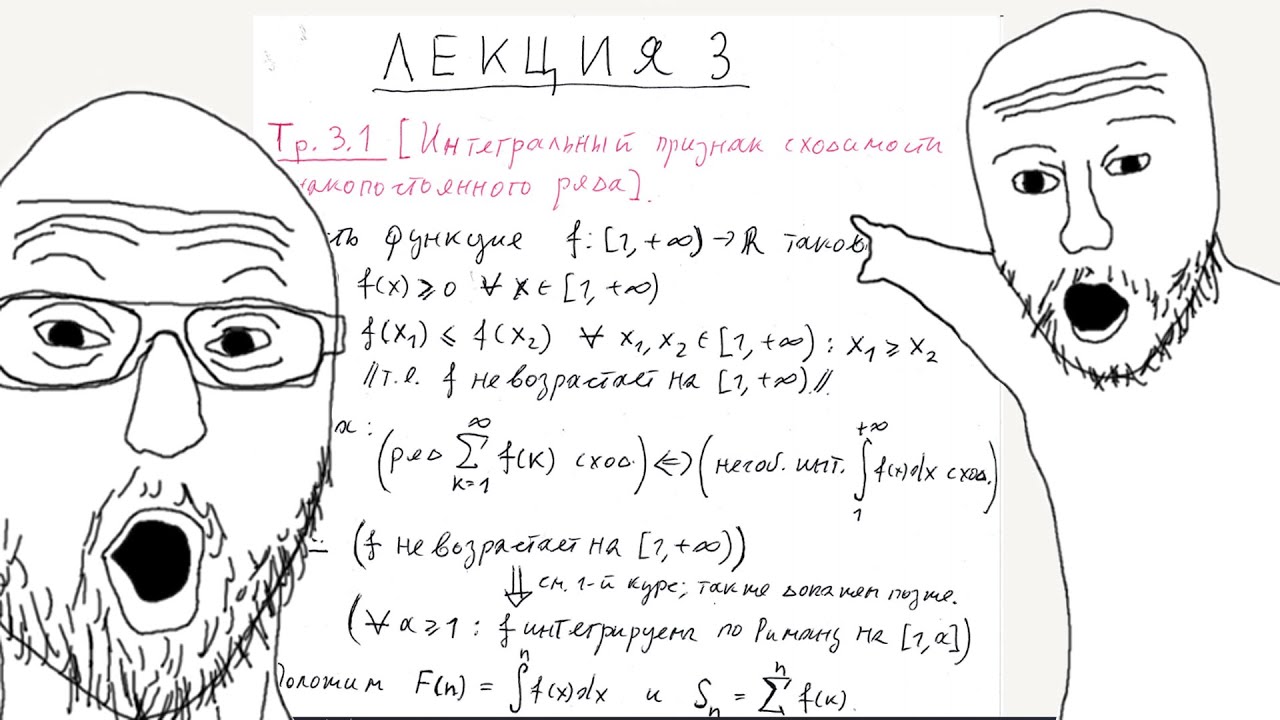 ЛЕКЦИЯ 3
Тр. 3.1 [Интегральный признак сходимости
накопостоянного ряда].
ть функция f: [1, +∞) → ℝ таков
f(x) ⩾ 0 ∀ x ∈ [1, +∞)
f(x₁) ⩽ f(x₂) ∀ x₁, x₂ ∈ [1, +∞) : x₁ ⩾ x₂
//т.е. f не возрастает на [1, +∞)//.
а:
(ряд ∑_{k=1}^{∞} f(k) сход.) ⇔ (несоб. инт. ∫_{1}^{+∞} f(x)dx сход.)
(f не возрастает на [1, +∞))
⇓ см. 1-й курс; также докажем позже.
(∀ a ⩾ 1 : f интегрируема по Риману на [1, a])
Положим F(n) = ∫^{n} f(x)dx и Sₙ = ∑^{n} f(k).